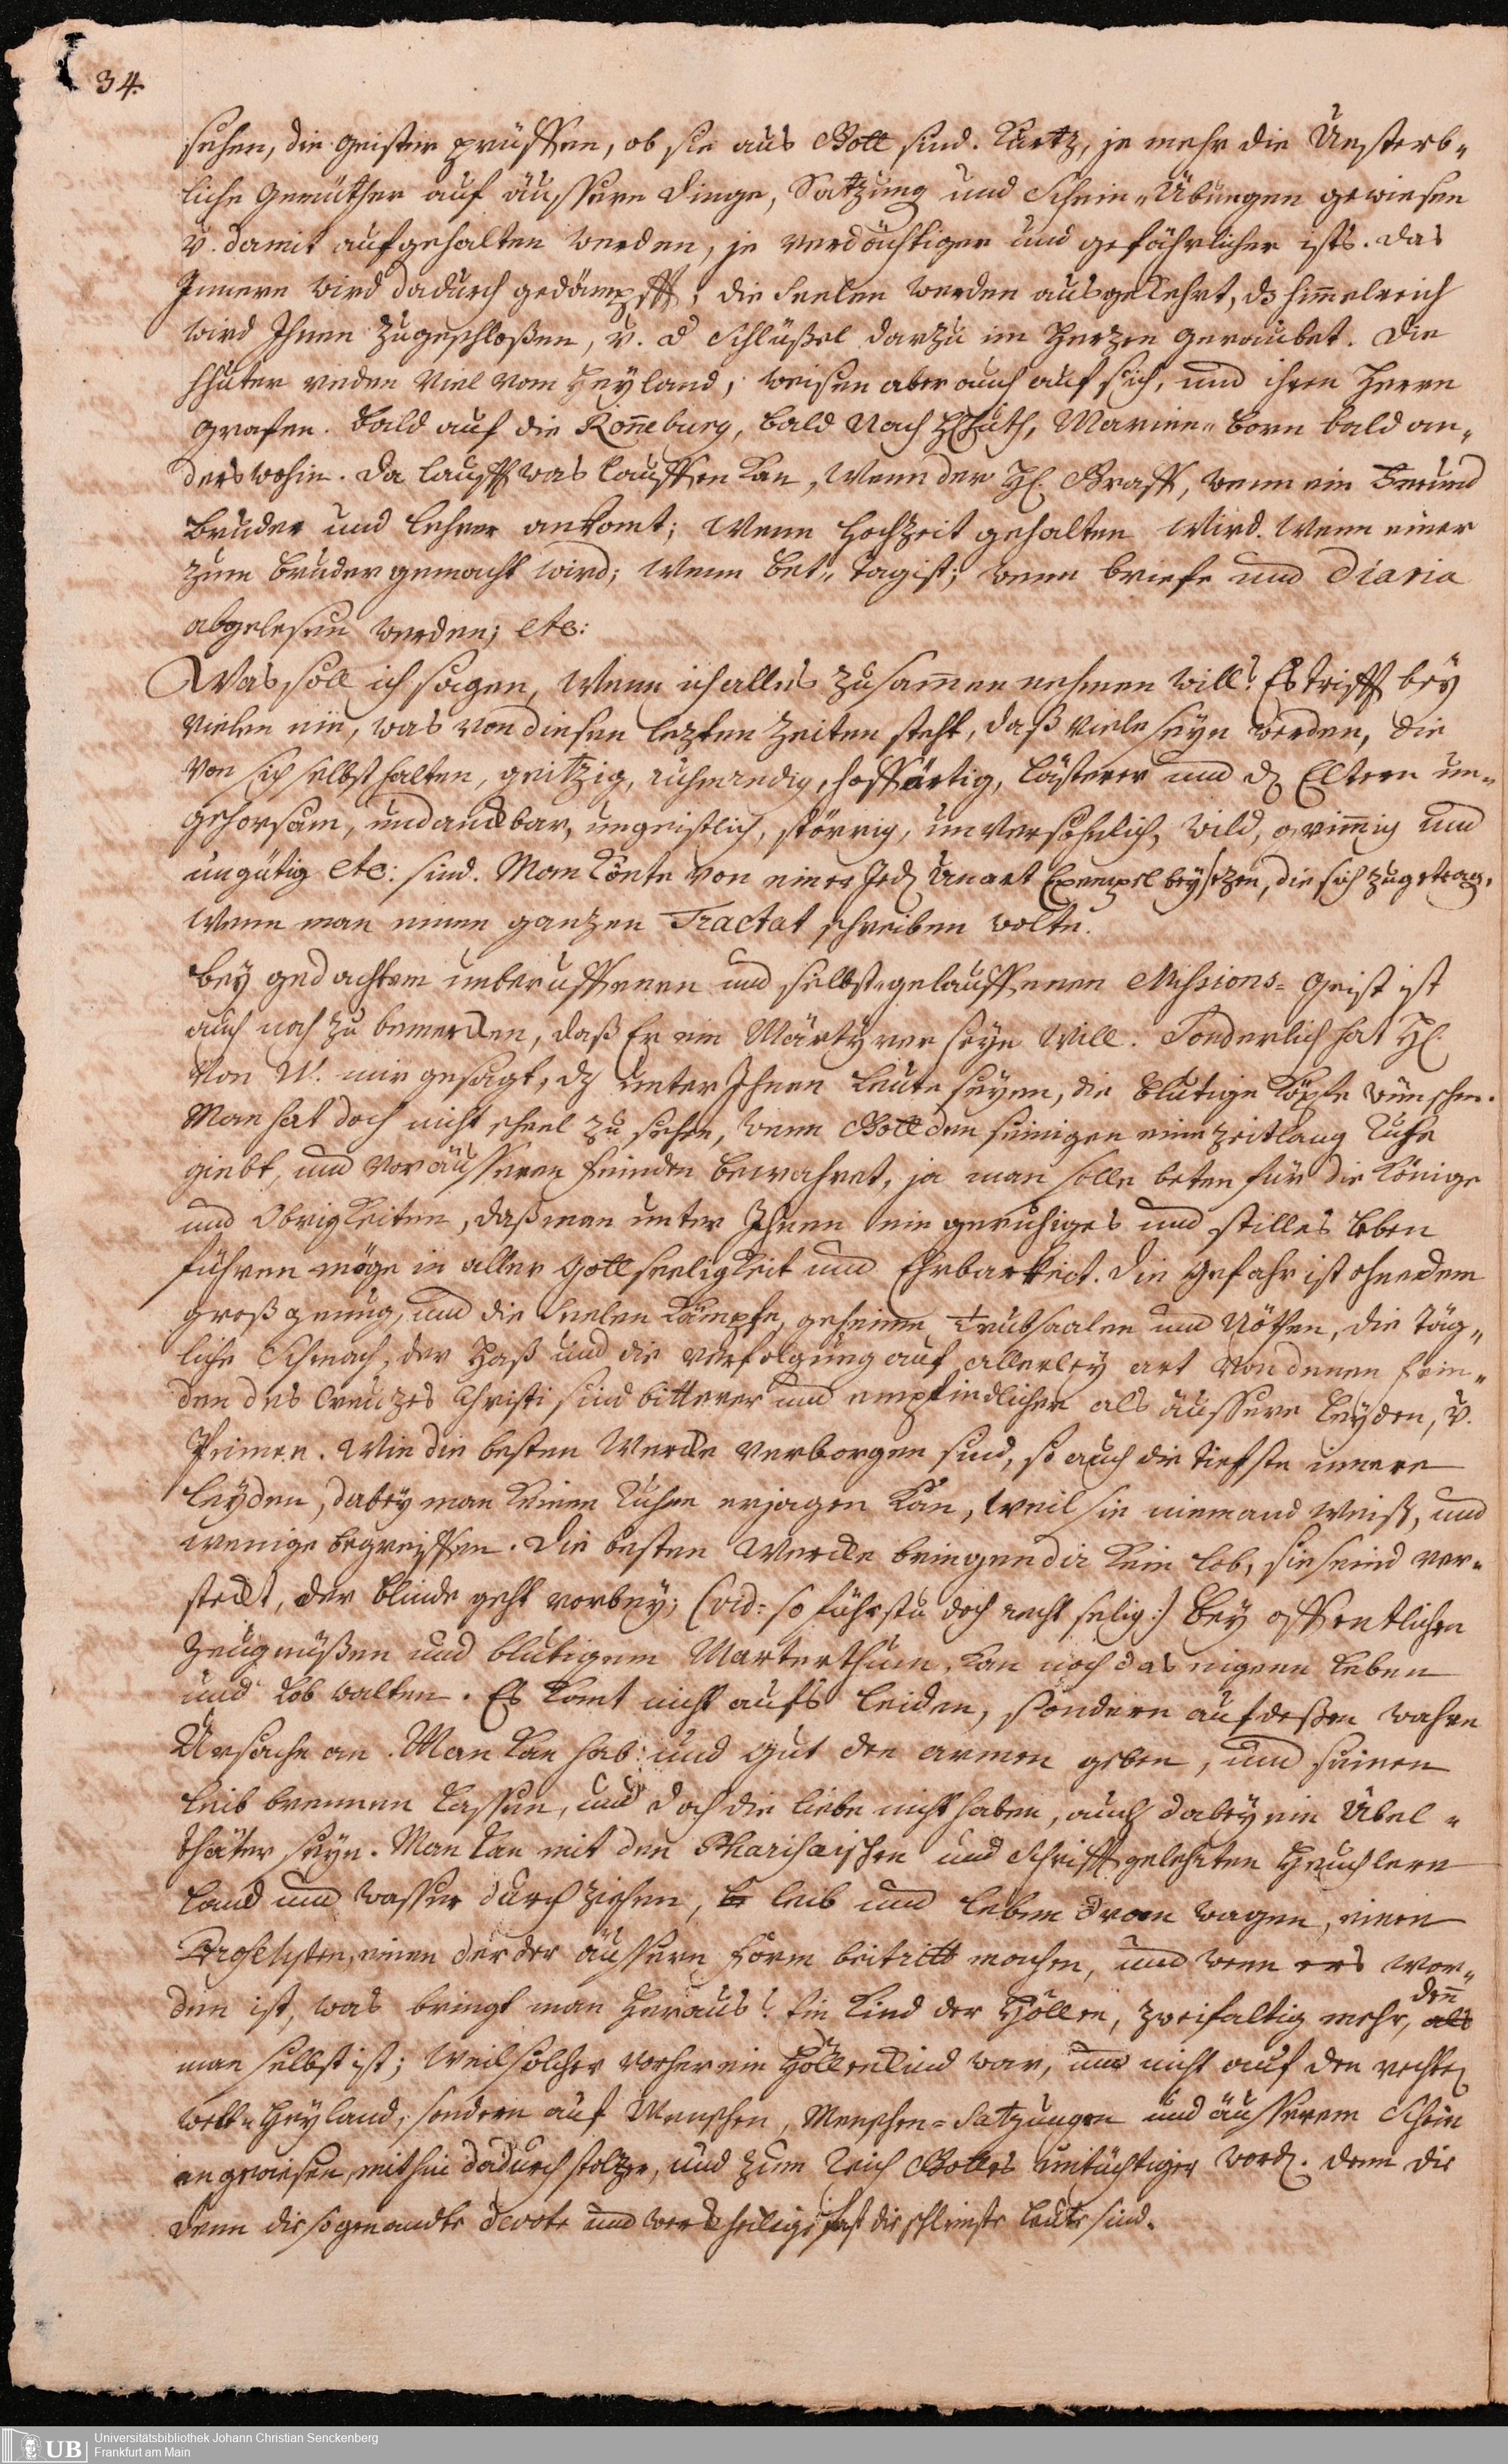 34.
sehen, die Geister prüffen, ob sie aus Gott sind. Kurtz, je mehr die Unsterb„
liche Gemüther auf äussere Dinge, Satzung und Schein„Übungen gewiesen
v. damit aufgehalten werden, je verdächtiger und gefährlicher ists. Das
Innere wird dadurch gedämpfft, die Seelen werden ausgekehrt, dz himmelreich
wird Ihnen zugeschloßen, v. d Schlüßel darzu im Herzen geraubet. Die
HHuter reden viel vom Heyland, weisen aber auch auf sich, und ihren Herrn
Grafen. Bald auf die Roñeburg, bald nach HHuth, Marien„born bald an„
derswohin. Da laufft was lauffen kan, wenn der H. Graff, wenn ein Freund
bruder und lehrer ankomt; Wenn hochzeit gehalten wird. Wenn einer
zum bruder gemacht wird; Wenn bet„tag ist; wenn briefe und Diaria
abgelesen werden; etc:
Was soll ich sagen, Wenn ich alles zusam̄en nehmen will? Es trifft bey
vielen ein, was von diesen lezten Zeiten steht, daß viele seyn werden, die
von sich selbst halten, geitzig, ruhmredig, hoffärtig, lästerer und d. Eltern un„
gehorsam, undanckbar, ungeistlich, störrig, unversöhnlich, wild, grim̄ig und
ungütig etc: sind. Man könte von einer Jed. Unart Exempel beysezen, die sich zugetrag,
Wenn man einen ganzen Tractat schreiben wolte.
Bey gedachtem unberuffenen und selbst„gelauffenen Missions= Geist ist
auch noch zu bemercken, daß Er ein Märtyrer seyn will. Sonderlich hat H.
von W. mir gesagt, dz unter Ihnen leute seyen, die blutige Köpfe wünschen.
Man hat doch nicht scheel zu sehen, wenn Gott den seinigen eine zeitlang Ruhe
giebt, und vor äusseren feinden bewahret, ja man solle beten für die Könige
und Obrigkeiten, daß man unter Ihnen ein geruhiges und stilles leben
führen möge in aller Gottseeligkeit und Ehrbarkeit. Die Gefahr ist ohnedem
groß genug, und die Seelen Kämpfe, geheime Trübsaalen und Nöthen, die täg„
liche Schmach, der Haß und die Verfolgung auf allerley art von denen fein„
den des Creuzes Christi sind bitterer und empfindlicher als äussere leyden, v.
Wie die besten Wercke verborgen sind, so auch die tiefste innere
leyden, dabey man keinen Ruhm erjagen kan, weil sie niemand weiß, und
wenige begreiffen. Die besten Wercke bringen dir kein lob, sie seind ver„
steckt, der blinde geht vorbey; (vid: so führstu doch recht selig:) Bey offentlichen
Zeugnüßen und blutigem Marterthum, kan noch das eigene leben
und lob walten. Es komt nicht aufs leiden, sondern auf deßen wahre
Ursache an. Man kan hab: und gut den armen geben, und seinen
leib brennen lassen, und doch die liebe nicht haben, auch dabey ein Übel„
thäter seyn. Man kan mit den Pharisaischen und Schrifftgelehrten Heuchlern
land und wasser durchziehen, leib und leben dran wagen, einen
Proselyten, einen der der äussern form beitritt machen, und wenn ers wor„
den ist, was bringt man heraus? Ein Kind der Höllen, zweifaltig mehr, denn als
man selbst ist; Weil solcher vorher ein Höllenkind war, und nicht auf den rechten
welt„Heyland, sondern auf Menschen, Menschen=Satzungen und äusserem Schein
angewiesen, mithin dadurch stoltzer, und zum Reich Gottes untüchtiger word. denn die
denn die sogenandte devote und werckheilige fast die schlimste leute sind.
UB
Universitätsbibliothek Johann Christian Senckenberg
Frankfurt am Main